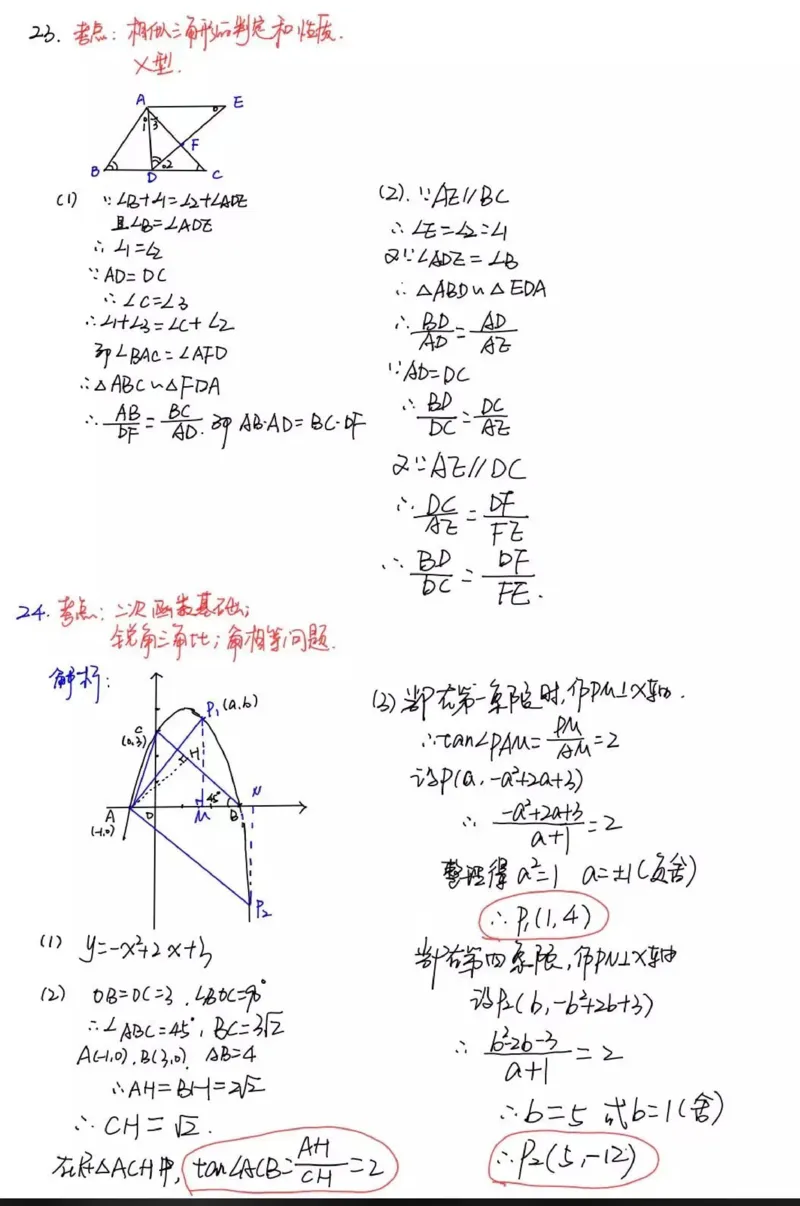 23. 考点：相似三角形的判定和性质.
X型.
A E
1 3
F
B D 2 C
(1) ∵∠B+∠1=∠2+∠ADE
且∠B=∠ADE
∴∠1=∠2
∵AD=DC
∴∠C=∠3
∴∠1+∠3=∠C+∠2
即∠BAC=∠AFD
∴△ABC∽△FDA
∴AB/DF=BC/AD. 即AB·AD=BC·DF
(2). ∵AE//BC
∴∠E=∠2=∠1
又∵∠ADE=∠B
∴△ABD∽△EDA
∴BD/AD=AD/AE
∵AD=DC
∴BD/DC=DC/AE
又∵AE//DC
∴DC/AE=DF/FE
∴BD/DC=DF/FE.
24. 考点：二次函数基础；
锐角三角比；角相等问题.
解析：
P₁(a,b)
C
(0,3)
H
A O M 45° B N
(-1,0)
P₂
(1) y=-x²+2x+3
(2) OB=OC=3, ∠BOC=90°
∴∠ABC=45°, BC=3√2
A(-1,0). B(3,0). AB=4
∴AH=BH=2√2
∴CH=√2.
在Rt△ACH中, tan∠ACB=AH/CH=2
(3) 当P在第一象限时, 作PM⊥X轴.
∴tan∠PAM=PM/AM=2
设P(a, -a²+2a+3)
∴(-a²+2a+3)/(a+1)=2
整理得 a²=1 a=±1(负舍)
∴P₁(1,4)
当P在第四象限, 作PN⊥X轴
设P₂(b, -b²+2b+3)
∴(b²-2b-3)/(a+1)=2
∴b=5 或b=1(舍)
∴P₂(5,-12)